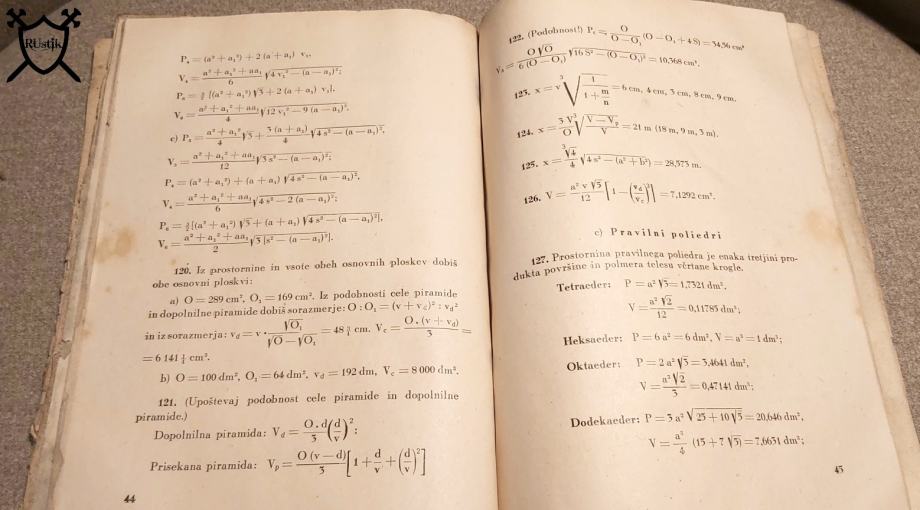 RUstik
P₄ = (a² + a₁²) + 2 (a + a₁) v₁,
V₄ = (a² + a₁² + aa₁)/6 √(4 v₁² − (a − a₁)²);
P₆ = 3/2 [(a² + a₁²) √3 + 2 (a + a₁) v₁],
V₆ = (a² + a₁² + aa₁)/4 √(12 v₁² − 9 (a − a₁)²).
c) P₃ = (a² + a₁²)/4 √3 + 3(a + a₁)/4 √(4 s² − (a − a₁)²),
V₃ = (a² + a₁² + aa₁)/12 √(3 s² − (a − a₁)²);
P₄ = (a² + a₁²) + (a + a₁) √(4 s² − (a − a₁)²,
V₄ = (a² + a₁² + aa₁)/6 √(4 s² − 2 (a − a₁)²;
P₆ = 3/2 [(a² + a₁²) √3 + (a + a₁) √(4 s² − (a − a₁)²],
V₆ = (a² + a₁² + aa₁)/2 √(3 [s² − (a − a₁)²].
120. Iz prostornine in vsote obeh osnovnih ploskev dobiš
obe osnovni ploskvi:
a) O = 289 cm², O₁ = 169 cm². Iz podobnosti cele piramide
in dopolnilne piramide dobiš sorazmerje: O : O₁ = (v + v_d)² : v_d²
in iz sorazmerja: v_d = v · √O₁/(√O − √O₁) = 48 3/4 cm. V_c = O . (v + v_d)/3 =
= 6 141 1/4 cm³.
b) O = 100 dm², O₁ = 64 dm², v_d = 192 dm, V_c = 8 000 dm³.
121. (Upoštevaj podobnost cele piramide in dopolnilne
piramide.)
Dopolnilna piramida: V_d = O . d/3 (d/v)²;
Prisekana piramida: V_p = O (v − d)/3 [1 + d/v + (d/v)²]
44
122. (Podobnost!) P₄ = O/(O − O₁) (O − O₁ + 4 S) = 34,56 cm²
V₄ = O √O/(6 (O − O₁)) √(16 S² − (O − O₁)²) = 10,368 cm³.
123. x = v ³√(1/(1 + m/n)) = 6 cm, 4 cm, 3 cm, 8 cm, 9 cm.
124. x = 3 V/O ³√((V − V_p)/V) = 21 m (18 m, 9 m, 3 m).
125. x = ³√4/4 √(4 s² − (a² + b²)) = 28,573 m.
126. V = a² v √3/12 [1 − (v_d/v_c)³] = 7,1292 cm³.
c) Pravilni poliedri
127. Prostornina pravilnega poliedra je enaka tretjini pro-
dukta površine in polmera telesu včrtane krogle.
Tetraeder: P = a² √3 = 1,7321 dm²,
V = a³ √2/12 = 0,11785 dm³;
Heksaeder: P = 6 a² = 6 dm², V = a³ = 1 dm³;
Oktaeder: P = 2 a² √3 = 3,4641 dm²,
V = a³ √2/3 = 0,47141 dm³;
Dodekaeder: P = 3 a² √(25 + 10 √5) = 20,646 dm²,
V = a³/4 (15 + 7 √5) = 7,6631 dm³;
45